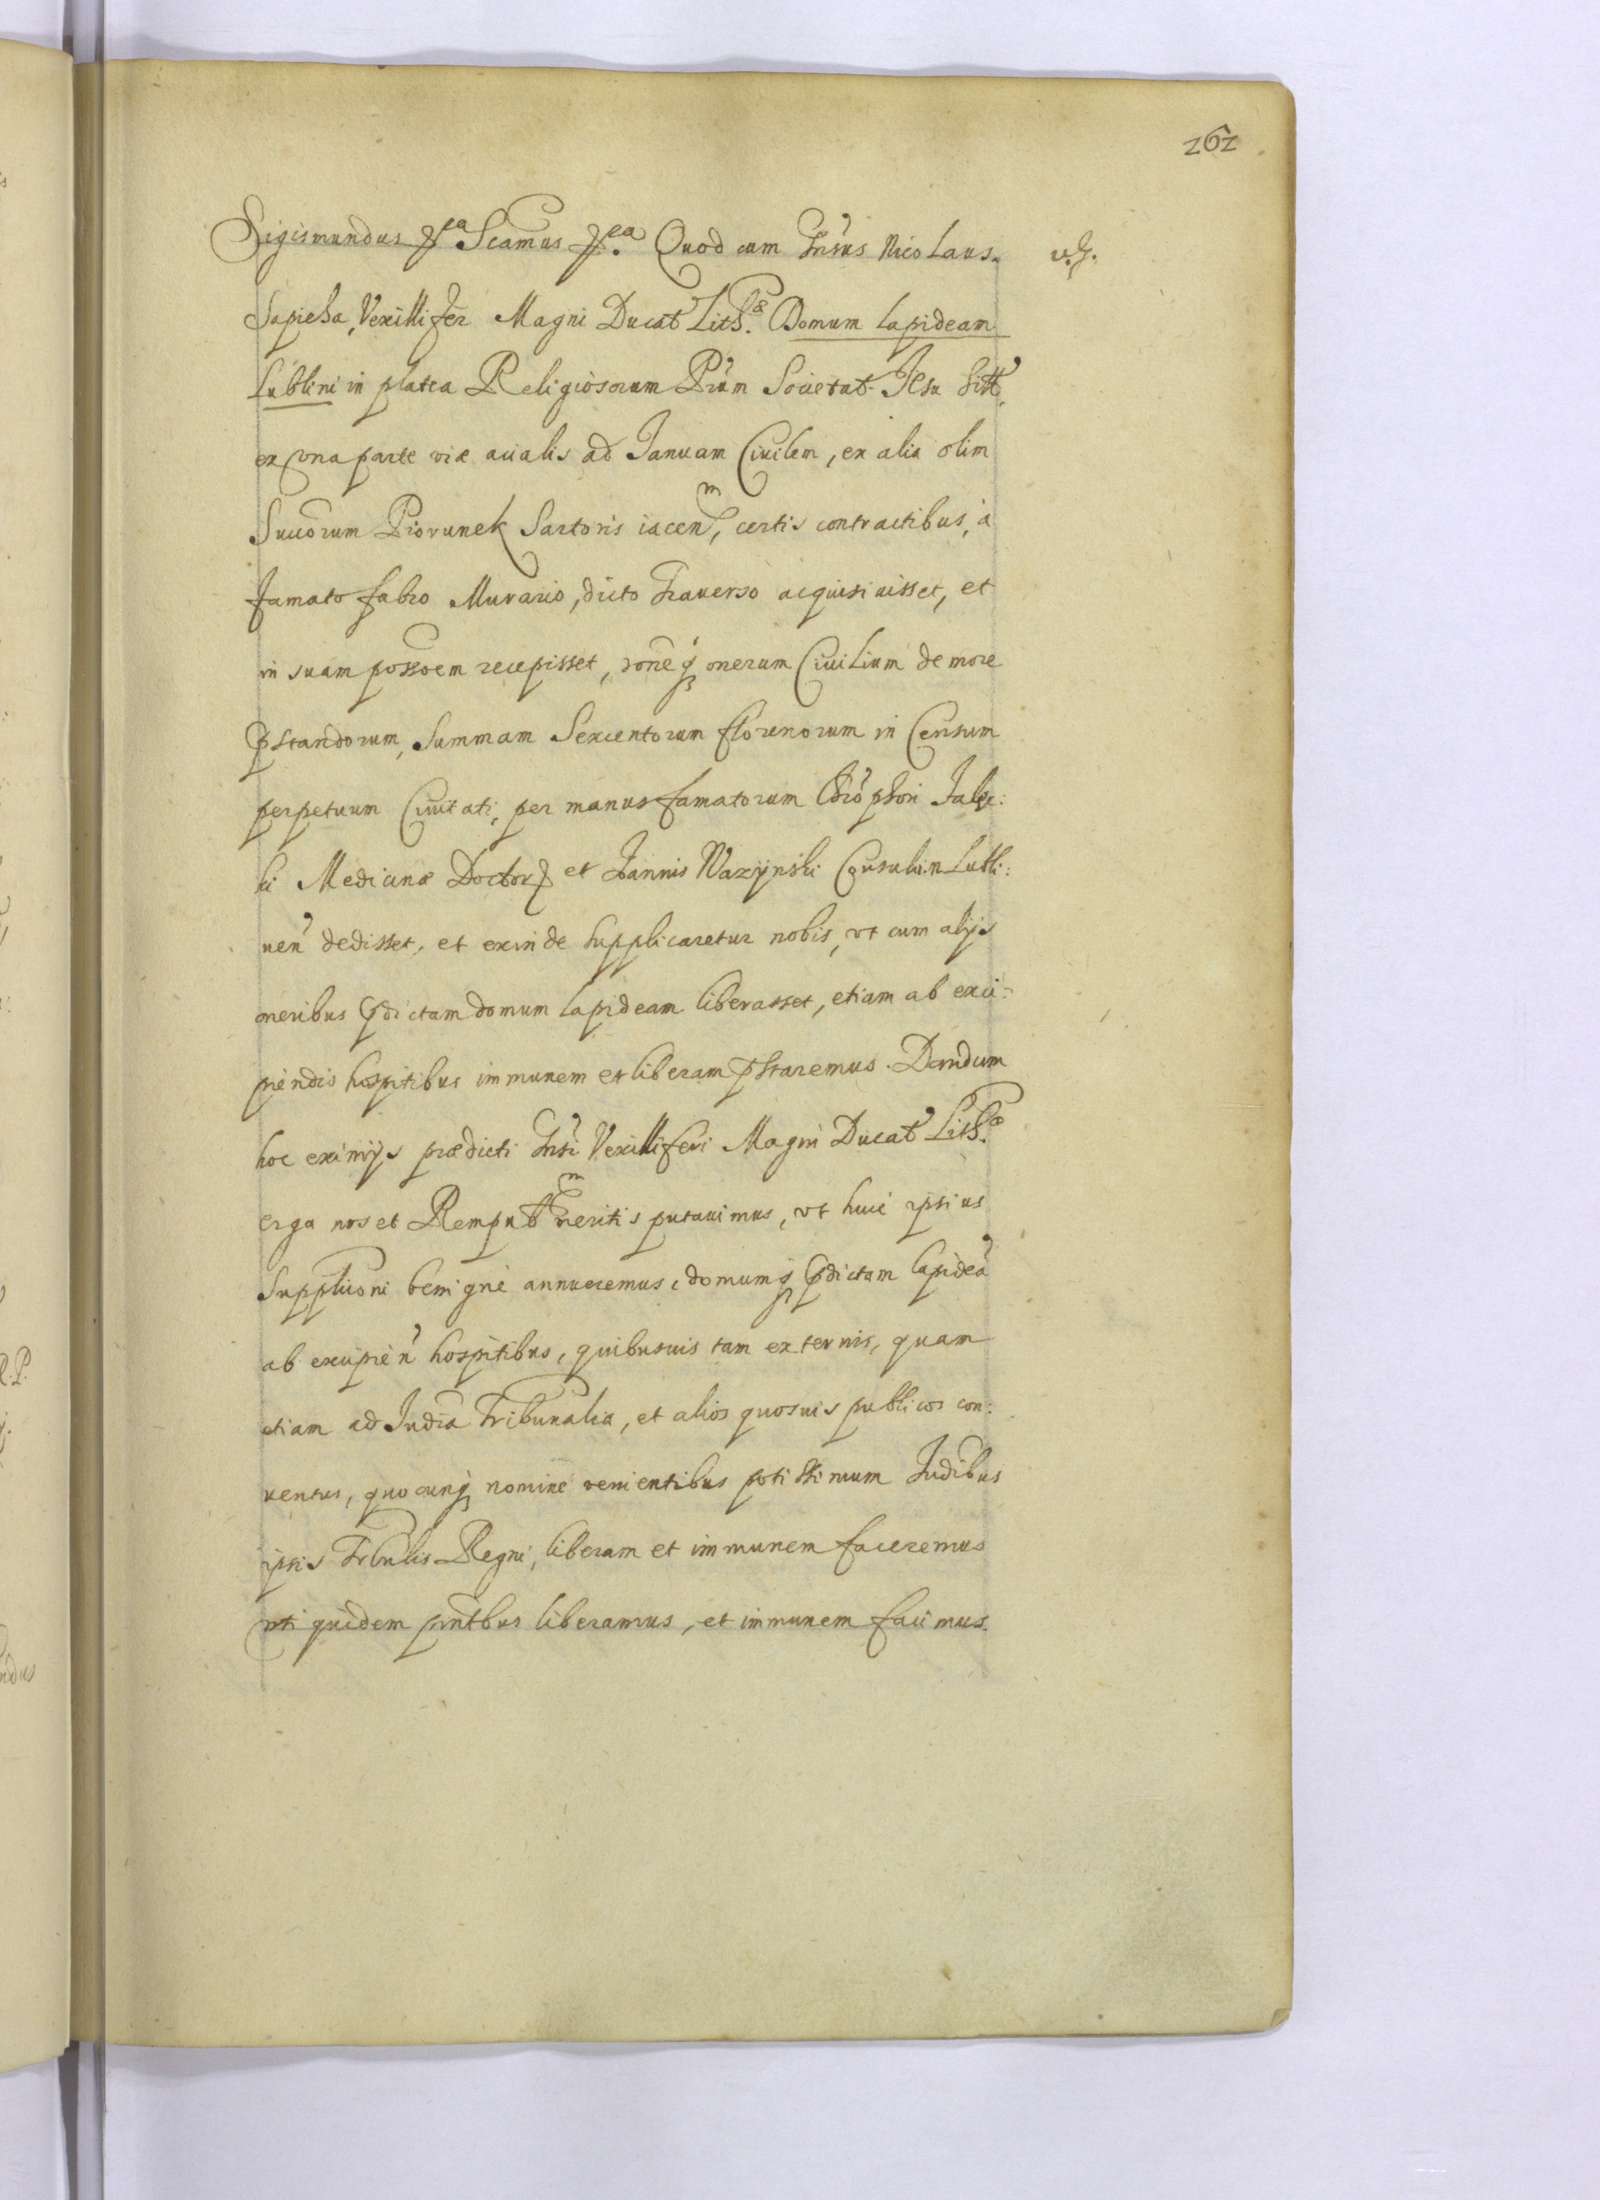 262
Sigismundus etca Scamus etca. Quod cum Gnsus Nicolaus
v. J.
Sapieha, Vexillifer Magni Ducat Lithæ. Domum lapideam
Lublini in platea Religiosorum Prum Societat Jesu sitt,
ex vna parte viæ acialis ad Januam Ciuilem, ex alia olim
Succorum Piorunek Sartoris iacenm, certis contractibus, à
famato fabro Murario, dicto Trauerso acquisiuisset, et
in suam possoem recepisset, rone q onerum Ciuilium de more
pstandorum, Summam Sexcentorum florenorum in Censum
perpetuum Ciuitati, per manus famatorum Chrophori Jalec:
ki Medicinæ Doctor et Joannis Wazynski Consulum Lubli:
nen dedisset, et exinde supplicaretur nobis, vt cum alijs
oneribus pdictam domum lapideam liberasset, etiam ab exci:
piendis hospitibus immunem et liberam pstaremus. Dandum
hoc eximijs prædicti Gnsi Vexilliferi Magni Ducat Lithæ.
erga nos et Rempubm meritis putauimus, vt huic ipsius
Supplicōni benignè annueremus, domumq pdictam lapideā
ab excipien hospitibus, quibusuis tam externis, quam
etiam ad Judia Tribunalia, et alios quosuis publicos con:
uentus, quocunq nomine venientibus potissimum Judibus
ipsis Trbnlis Regni, liberam et immunem faceremus
vti quidem pntbus liberamus, et immunem facimus.